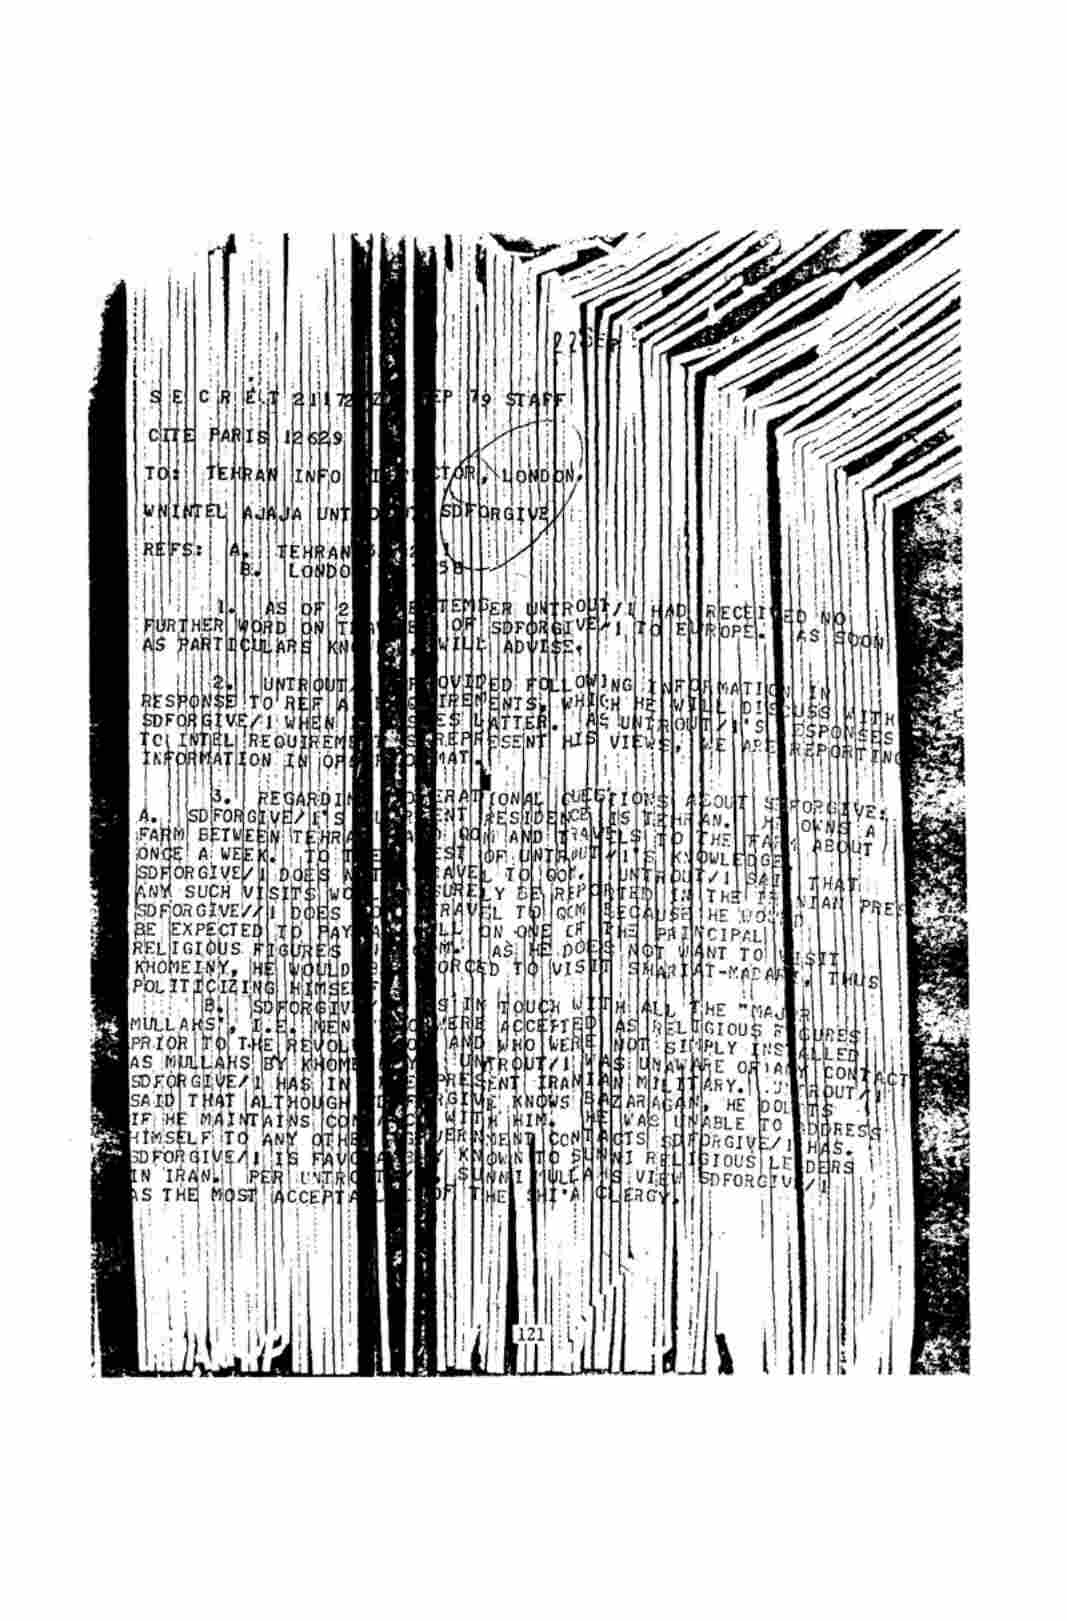 22 SEP
S E C R E T 21172 SEP 79 STAFF
CITE PARIS 12629
TO: TEHRAN INFO DIRECTOR, LONDON.
WNINTEL AJAJA SDFORGIVE
REFS: A. TEHRAN
B. LONDO
1. AS OF 2 SEPTEMBER UNTROUT/1 HAD RECEIVED NO
FURTHER WORD ON TRAVEL OF SDFORGIVE/1 TO EUROPE. AS SOON
AS PARTICULARS KNOWN, WILL ADVISE.
2. UNTROUT/1 PROVIDED FOLLOWING INFORMATION IN
RESPONSE TO REF A REQUIREMENTS, WHICH HE WILL DISCUSS WITH
SDFORGIVE/1 WHEN SEES LATTER. AS UNTROUT/1'S RESPONSES
TO INTEL REQUIREMENTS REPRESENT HIS VIEWS, WE ARE REPORTING
INFORMATION IN OPS FORMAT.
3. REGARDING OPERATIONAL QUESTIONS ABOUT SDFORGIVE:
A. SDFORGIVE/1'S CURRENT RESIDENCE IS TEHRAN. HE OWNS A
FARM BETWEEN TEHRAN AND QOM AND TRAVELS TO THE FARM ABOUT
ONCE A WEEK. TO THE BEST OF UNTROUT/1'S KNOWLEDGE
SDFORGIVE/1 DOES NOT TRAVEL TO QOM. UNTROUT/1 SAID THAT
ANY SUCH VISITS WOULD SURELY BE REPORTED IN THE IRANIAN PRESS
SDFORGIVE//1 DOES NOT TRAVEL TO QOM BECAUSE HE WOULD
BE EXPECTED TO PAY A CALL ON ONE OF THE PRINCIPAL
RELIGIOUS FIGURES IN QOM. AS HE DOES NOT WANT TO VISIT
KHOMEINY, HE WOULD BE FORCED TO VISIT SHARIAT-MADARI, THUS
POLITICIZING HIMSELF.
B. SDFORGIVE/1 IS IN TOUCH WITH ALL THE "MAJOR
MULLAHS", I.E. MEN WHO WERE ACCEPTED AS RELIGIOUS FIGURES
PRIOR TO THE REVOLUTION AND WHO WERE NOT SIMPLY INSTALLED
AS MULLAHS BY KHOMEINY. UNTROUT/1 WAS UNAWARE OF ANY CONTACT
SDFORGIVE/1 HAS IN THE PRESENT IRANIAN MILITARY. UNTROUT/1
SAID THAT ALTHOUGH SDFORGIVE KNOWS BAZARAGAN, HE DOUBTS
IF HE MAINTAINS CONTACT WITH HIM. HE WAS UNABLE TO ADDRESS
HIMSELF TO ANY OTHER GOVERNMENT CONTACTS SDFORGIVE/1 HAS.
SDFORGIVE/1 IS FAVORABLY KNOWN TO SUNNI RELIGIOUS LEADERS
IN IRAN. PER UNTROUT/1, SUNNI MULLAHS VIEW SDFORGIVE/1
AS THE MOST ACCEPTABLE OF THE SHI'A CLERGY.
121